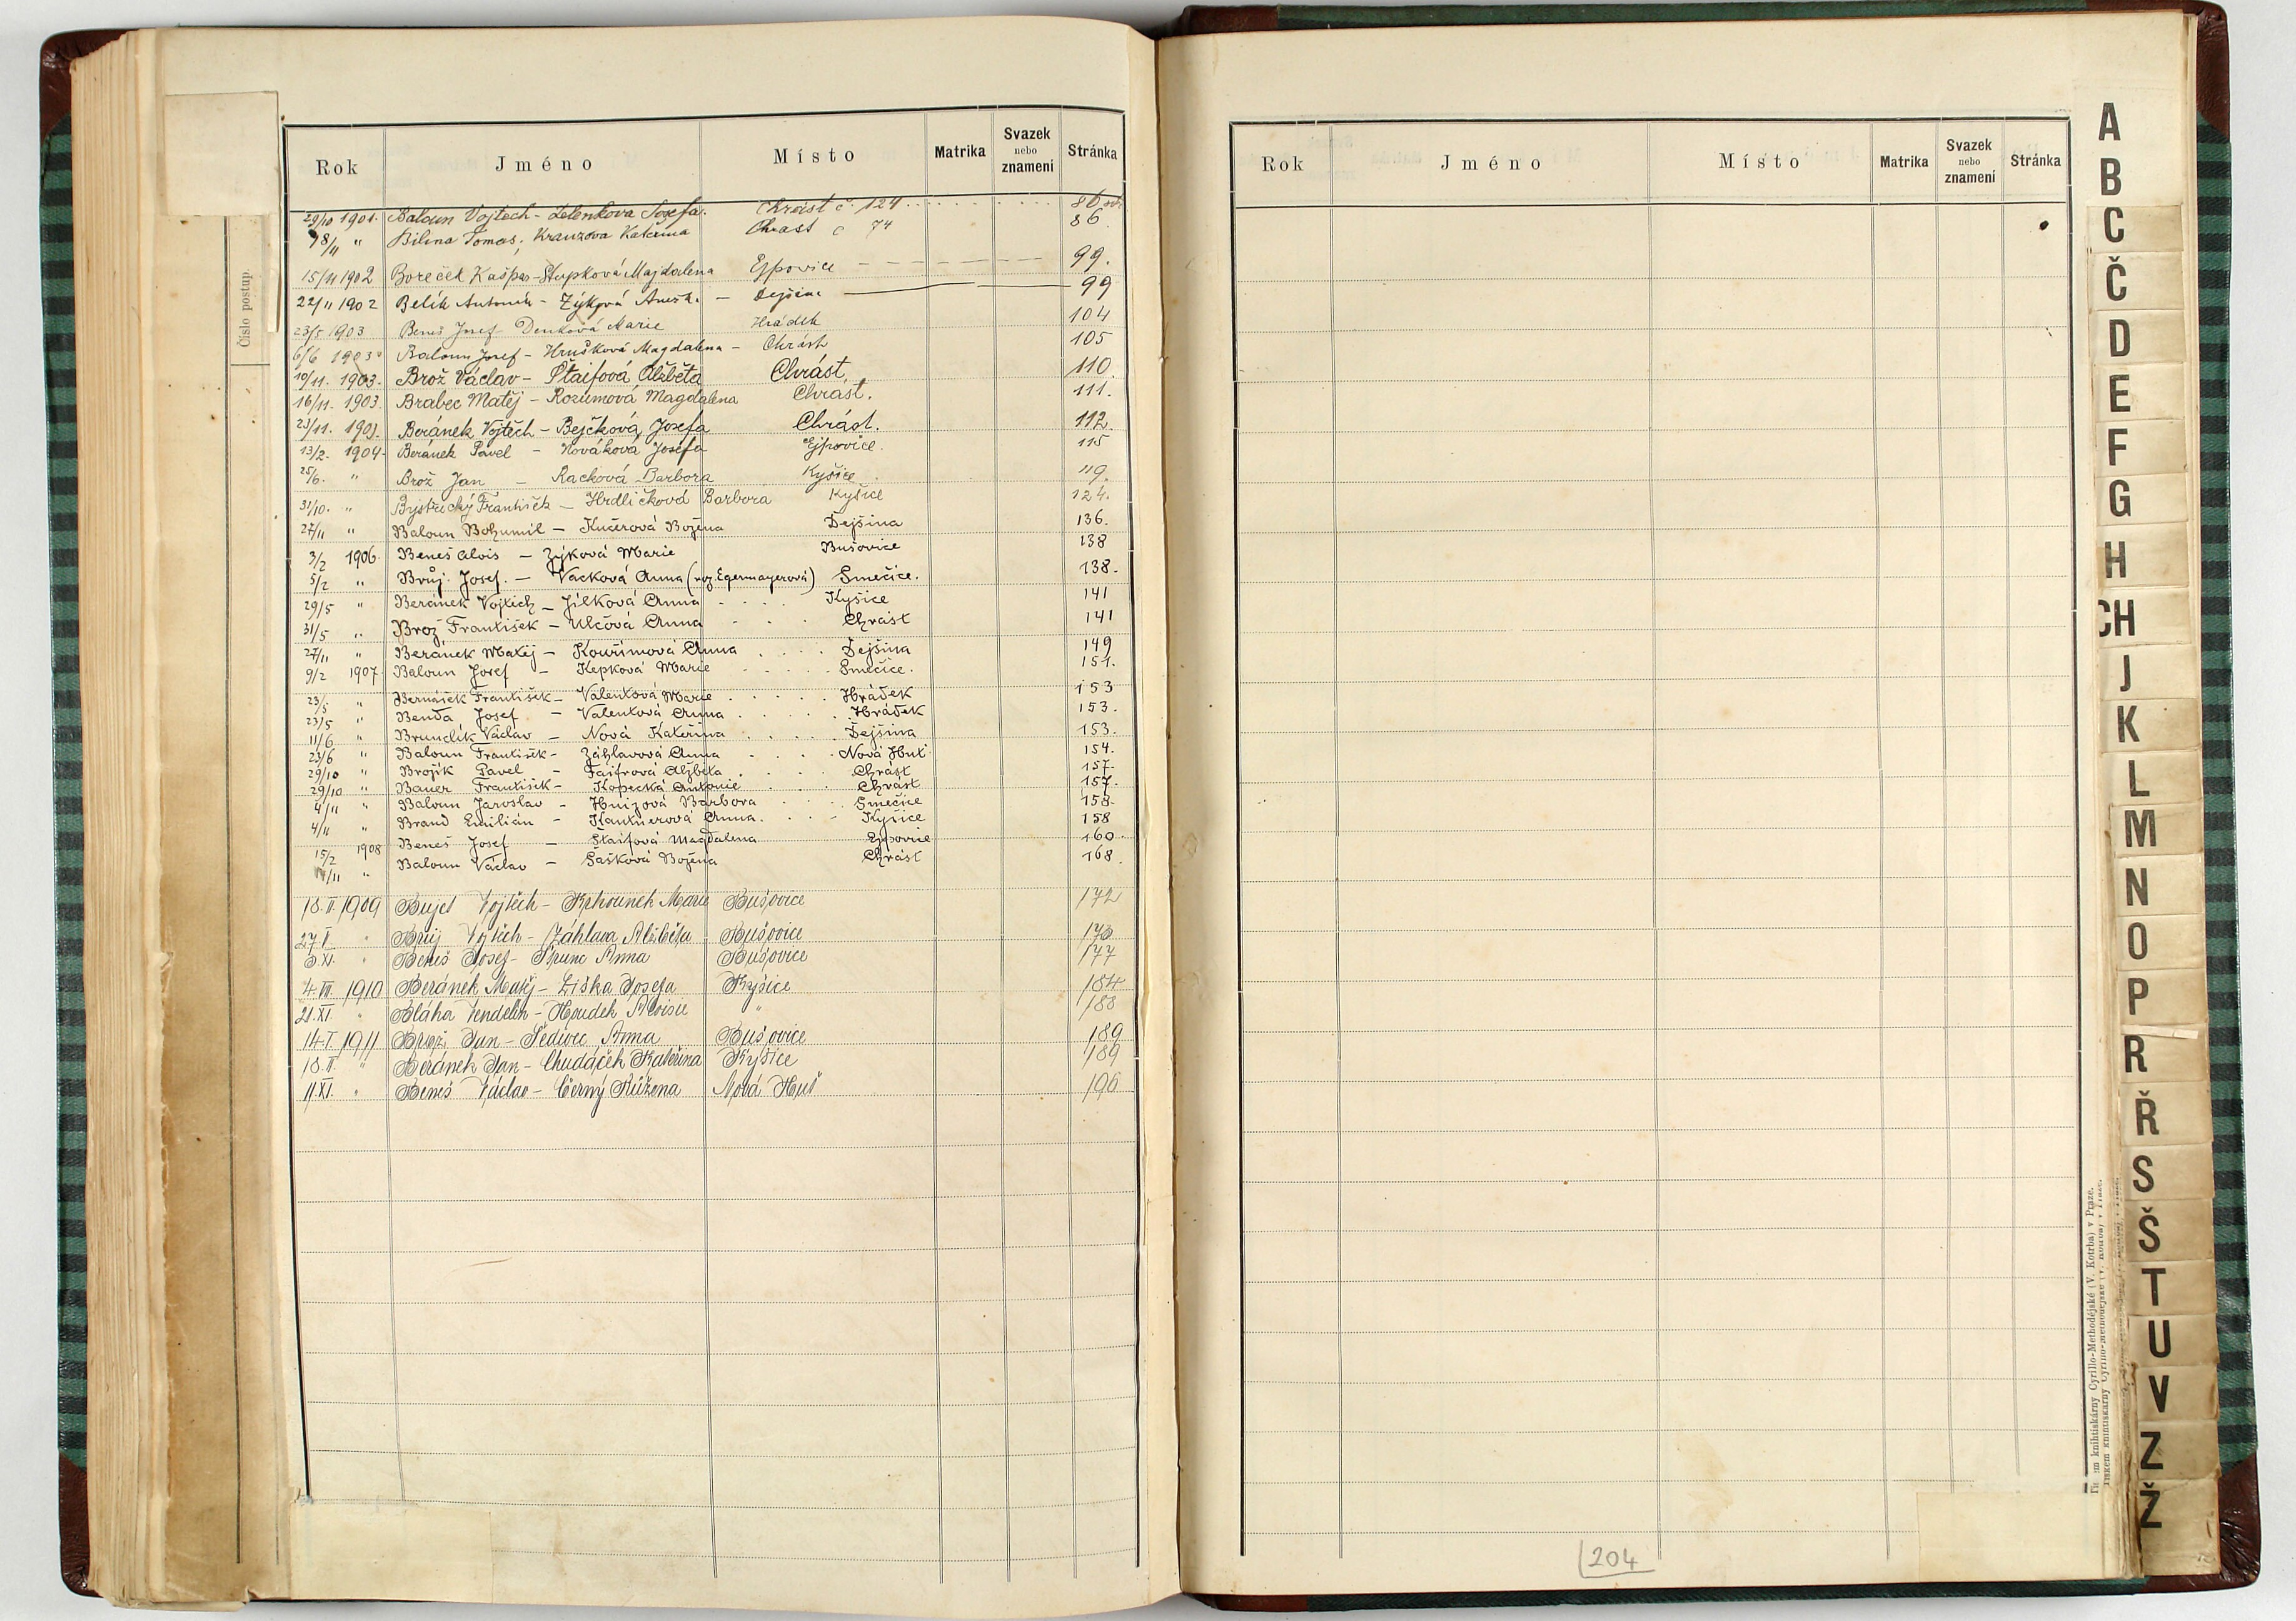 Číslo postup.
Rok Jméno Místo Matrika Svazek nebo znamení Stránka
29/10 1901. Baloun Vojtěch - Zelenkova Josefa. Chrást č. 124 86
18/11 " Bilina Tomas, Kranzova Kateřina Chrast č 74 86.
15/11 1902 Boreček Kašpar - Stupková Majdalena Ejpovice 99.
22/11 1902 Belik Antonín - Zýková Anežk. - Dejšina 99
23/5 1903 Beneš Josef - Denková Marie Hrádek 104
6/6 1903 Baloun Josef - Hrušková Magdalena - Chrást 105
10/11. 1903. Brož Václav - Štaifová Alžběta Chrást 110
16/11. 1903. Brabec Matěj - Rozumová Magdalena Chrást. 111.
23/11. 1903. Beránek Vojtěch - Bejčková Josefa Chrást. 112.
13/2. 1904. Beránek Pavel - Nováková Josefa Ejpovice. 115
25/6. " Brož Jan - Racková Barbora Kyšice 119.
31/10. " Bystřický František - Hrdličková Barbora Kyšice 124.
27/11 " Baloun Bohumil - Kučerová Božena Dejšina 136.
3/2 1906. Beneš Alois - Zýková Marie Bušovice 138
5/2 " Brůj Josef. - Vacková Anna (roz. Egermayerová) Smečice. 138.
29/5 " Beránek Vojtěch - Jílková Anna Kyšice 141
31/5 " Brož František - Ulčová Anna Chrást 141
27/11 " Beránek Matěj - Kouřimová Anna Dejšina 149
9/2 1907. Baloun Josef - Kepková Marie Smečice. 151.
23/5 " Bernášek František - Valentová Marie Hrádek 153
23/5 " Benda Josef - Valentová Anna Hrádek 153.
11/6 " Brunclík Václav - Nová Kateřina Dejšina 153.
23/6 " Baloun František - Záhlavová Anna Nová Huť 154.
29/10 " Brojík Pavel - Faifrová Alžběta Chrást 157.
29/10 " Bauer František - Kopecká Antonie Chrást 157.
4/11 " Baloun Jaroslav - Hnizová Barbora Smečice 158.
4/11 " Brand Emilián - Kantnerová Anna. Kyšice 158
15/2 1908 Beneš Josef - Štaifová Magdalena Ejpovice 160.
/11 " Baloun Václav - Šašková Božena Chrást 168.
18.II. 1909 Bujet Vojtěch - Krhounek Marie Bušovice 172
27.V. " Brůj Vojtěch - Záhlava Alžběta Bušovice 173
8.XI. " Beneš Josef - Šrunc Anna Bušovice 177
4.VII. 1910 Beránek Matěj - Liška Josefa Kyšice 184
21.XI. " Bláha Vendelín - Houdek Aloisie " 188
14.I. 1911 Brož Jan - Šedivec Anna Bušovice 189
18.II. " Beránek Jan - Chudáček Kateřina Kyšice 189
11.XI. " Beneš Václav - Černý Růžena Nová Huť 196
Rok Jméno Místo Matrika Svazek nebo znamení Stránka
knihtiskárny Cyrillo-Methodějské (V. Kotrba) v Praze.
204
A
B
C
Č
D
E
F
G
H
CH
J
K
L
M
N
O
P
R
Ř
S
Š
T
U
V
Z
Ž